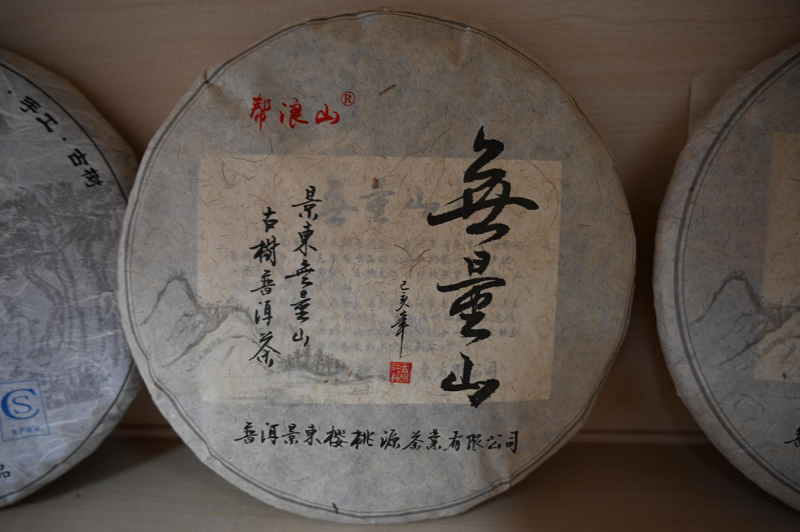 帮浪山®
無量山
己亥年
景東無量山
古樹普洱茶
普洱景東樱桃源茶業有限公司
手工·古树
品